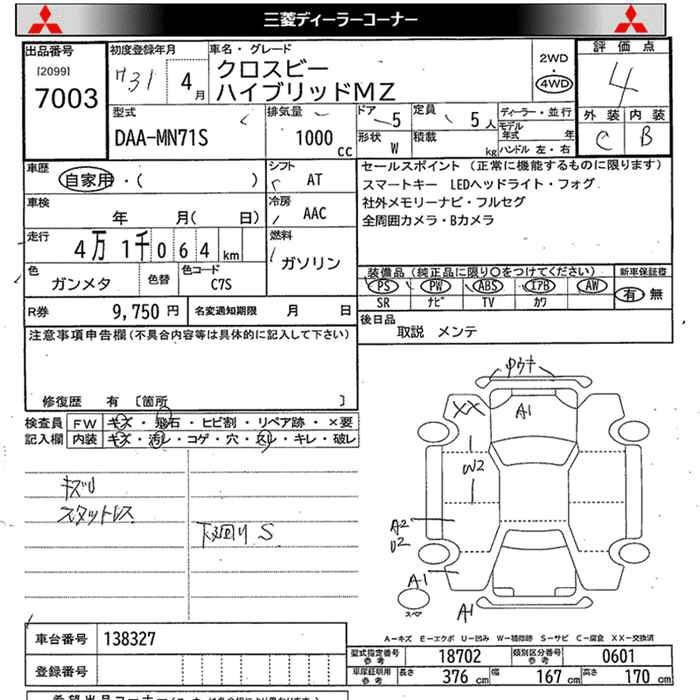 三菱ディーラーコーナー
出品番号
[2099]
7003
初度登録年月
H31 4月
車名・グレード
クロスビー
ハイブリッドMZ
2WD
4WD
評価点
4
外装 内装
C B
型式
DAA-MN71S
排気量
1000 cc
ドア 5
定員 5人
形状 W
積載 kg
ディーラー・並行
モデル年式 年
ハンドル 左・右
車歴
自家用・( )
シフト
AT
車検
年 月( 日)
冷房
AAC
走行
4万1千064km
燃料
ガソリン
色
ガンメタ
色替
色コード
C7S
R券
9,750円
名変通知期限 月 日
セールスポイント(正常に機能するものに限ります)
スマートキー LEDヘッドライト・フォグ
社外メモリーナビ・フルセグ
全周囲カメラ・Bカメラ
装備品(純正品に限り○をつけてください)
PS PW ABS エアB AW
SR ナビ TV カワ
新車保証書
有・無
後日品
取説 メンテ
注意事項申告欄(不具合内容等は具体的に記入して下さい)
修復歴 有 [箇所 ]
検査員記入欄
FW キズ・飛石・ヒビ割・リペア跡・×要
内装 キズ・汚レ・コゲ・穴・スレ・キレ・破レ
キズU
スタットレス
下廻りS
A1
XX
W2
A2
U2
A1
A1
スペア
A-キズ E-エクボ U-凹み W-補修跡 S-サビ C-腐食 XX-交換済
車台番号 138327
登録番号
型式指定番号参考 18702
類別区分番号参考 0601
車庫証明用参考 長さ 376cm 幅 167cm 高さ 170cm